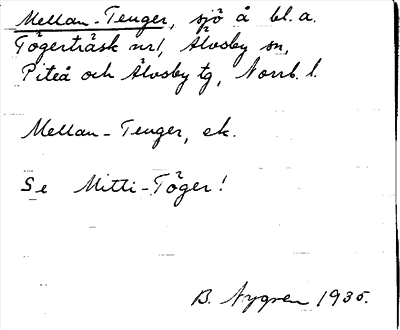 Mellan-Tenger, sjö å bl.a.
Tögerträsk nr1, Älvsby sn,
Piteå och Älvsby tg, Norrb. l.
Mellan-Tenger, ek.
Se Mitti-Töger!
B. Nygren 1935.